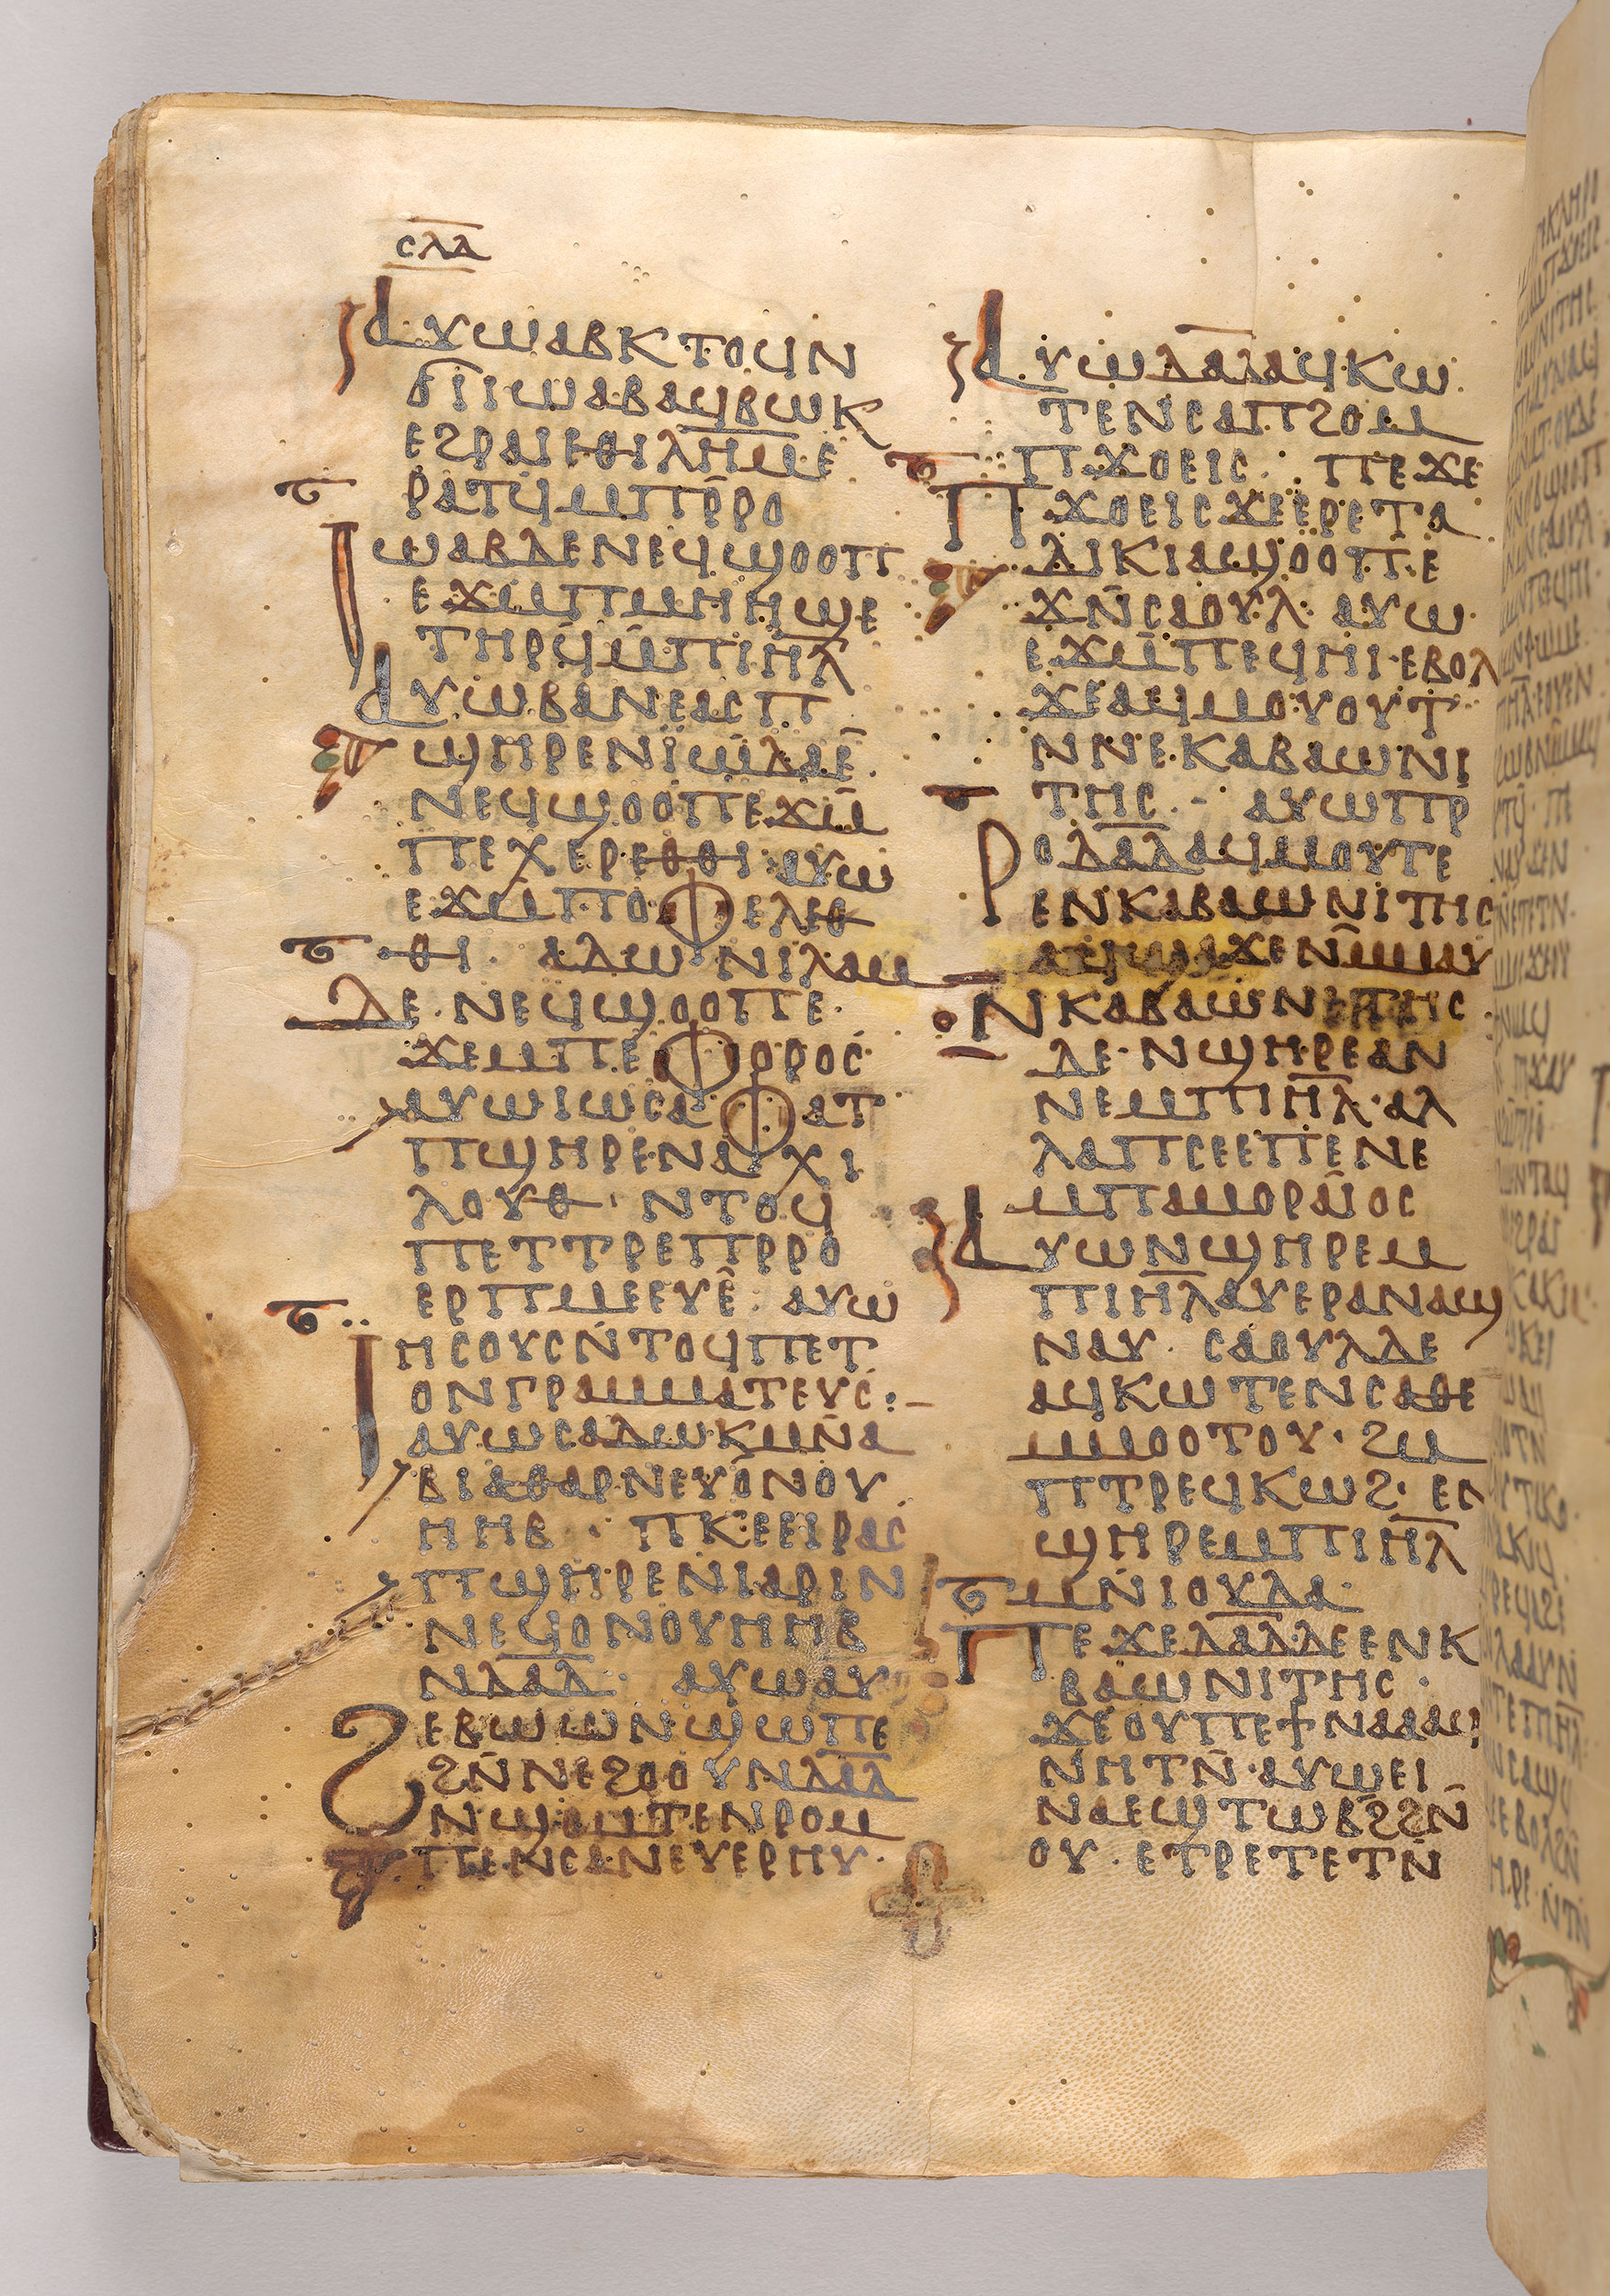 ⲥⲗⲇ
ⲁⲩⲱⲁⲃⲕⲧⲟϥⲛ
ϭⲓⲓⲱⲁⲃⲁϥⲃⲱⲕ
ⲉϩⲣⲁⲓⲉⲑⲓⲗ̅ⲏ̅ⲙ̅ⲉ
ⲣⲁⲧϥⲙⲡⲣ̅ⲣⲟ
ⲓⲱⲁⲃⲇⲉⲛⲉϥϣⲟⲟⲡ
ⲉϫⲙⲡⲙⲏⲏϣⲉ
ⲧⲏⲣϥ̅ⲙ̅ⲡⲓⲏ̅ⲗ̅
ⲁⲩⲱⲃⲁⲛⲉⲁⲥⲡ
ϣⲏⲣⲉⲛⲓ̈ⲱⲇⲁⲉ̅
ⲛⲉϥϣⲟⲟⲡⲉϫⲙ̅
ⲡⲉⲭⲉⲣⲉⲑⲑⲓ ⲁⲩⲱ
ⲉϫⲙ̅ⲡⲟⲫⲉⲗⲉⲑ
ⲑⲓ · ⲁⲇⲱⲛⲓⲗⲁⲙ
ⲇⲉ · ⲛⲉϥϣⲟⲟⲡⲉ ·
ϫⲉⲙⲡⲉⲫⲟⲣⲟⲥ
ⲁⲩⲱⲓⲱⲥⲁⲫⲁⲧ
ⲡϣⲏⲣⲉⲛⲁⲭⲓ
ⲗⲟⲩⲑ · ⲛⲧⲟϥ
ⲡⲉⲧⲧⲣⲉⲡⲣⲣⲟ
ⲉⲣⲡⲙⲉⲉⲩⲉ̅ · ⲁⲩⲱ
ⲓ̈ⲏⲥⲟⲩⲥⲛ̅ⲧⲟϥⲡⲉⲧ
ⲟⲛⲅⲣⲁⲙⲙⲁⲧⲉⲩⲥ :-
ⲁⲩⲱⲥⲁⲇⲱⲕⲙⲛ̅ⲁ
ⲃⲓⲁⲑⲁⲣⲛⲉⲩⲟ̅ⲛⲟⲩ
ⲏⲏⲃ · ⲡⲕⲉⲉⲓⲣⲁⲥ
ⲡϣⲏⲣⲉⲛⲓⲁⲣⲓⲛ
ⲛⲉϥⲟⲛⲟⲩⲏⲏⲃ
ⲛⲇ̅ⲁ̅ⲇ̅ · ⲁⲩⲱⲁⲩ
ϩⲉⲃⲱⲱⲛϣⲱⲡⲉ
ϩⲛ̅ⲛⲉϩⲟⲟⲩⲛⲇ̅ⲁ̅ⲇ̅
ⲛϣⲟⲙⲧⲉⲛⲣⲟⲙ
ⲡⲉ·ⲛⲥⲁⲛⲉⲩⲉⲣⲏⲩ ·
ⲁⲩⲱⲇ̅ⲁ̅ⲇ̅ⲁϥⲕⲱ
ⲧⲉⲛⲥⲁⲡϩⲟⲙ
ⲡϫⲟⲉⲓⲥ : ⲡⲉϫⲉ
ⲡϫⲟⲉⲓⲥϫⲉⲉⲣⲉⲧⲁ
ⲇⲓⲕⲓⲁϣⲟⲟⲡ·ⲉ
ϫⲛ̅ⲥⲁⲟⲩⲗ · ⲁⲩⲱ
ⲉϫⲙ̅ⲡⲉϥⲏⲓ·ⲉⲃⲟⲗ
ϫⲉⲁϥⲙⲟⲩⲟⲩⲧ
ⲛⲛⲉ·ⲕⲁⲃⲁⲱⲛⲓ
ⲧⲏⲥ · - ⲁⲩⲱⲡⲣ
ⲣⲟⲇ̅ⲁ̅ⲇ̅ⲁϥⲙⲟⲩⲧⲉ
ⲉⲛⲕⲁⲃⲁⲱⲛⲓⲧⲏⲥ
ⲁϥϣⲁϫⲉⲛⲙ̅ⲙⲁⲩ
ⲛⲕⲁⲃⲁⲱⲛⲉⲓⲧⲏⲥ
ⲇⲉ·ⲛϣⲏⲣⲉⲁⲛ
ⲛⲉⲙⲡⲓⲏ̅ⲗ̅·ⲁⲗ
ⲗⲁⲡⲥⲉⲉⲡⲉⲛⲉ
ⲙⲡⲁⲙⲟⲣⲁⲓ̈ⲟⲥ
ⲁⲩⲱⲛϣⲏⲣⲉⲙ
ⲡⲓⲏ̅ⲗ̅ⲁⲩⲉⲣⲁⲛⲁϣ
ⲛⲁⲩ · ⲥⲁⲟⲩⲗⲇⲉ
ⲁϥⲕⲱⲧⲉⲛⲥⲁⲑⲉ
ⲙⲙⲟⲟⲧⲟⲩ · ϩⲙ
ⲡⲧⲣⲉϥⲕⲱϩ · ⲉⲛ
ϣⲏⲣⲉⲙⲡⲓⲏ̅ⲗ̅
ⲙⲛ̅ⲓⲟⲩⲇⲁ ·
ⲡⲉϫⲉⲇ̅ⲁ̅ⲇ̅ⲇⲉⲉⲛⲕ
ⲃⲁⲱⲛⲓⲧⲏⲥ ·
ϫⲉⲟⲩⲡⲉϯⲛⲁⲁⲁϥ
ⲛⲏⲧⲛ̅·ⲁⲩⲱⲉⲓ
ⲛⲁⲉϣⲧⲱⲃϩϩⲛ̅
ⲟⲩ · ⲉⲧⲣⲉⲧⲉⲧⲛ̅